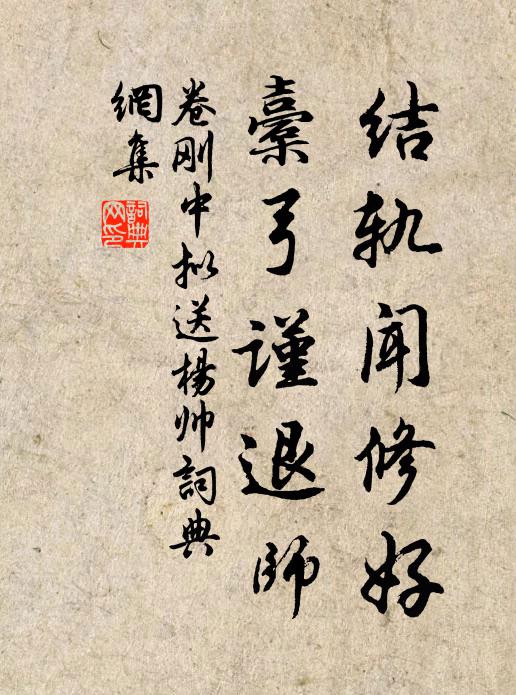 结轨闻修好
櫜弓谨退师
卷刚中拟送杨帅词典
網集
詞典網印